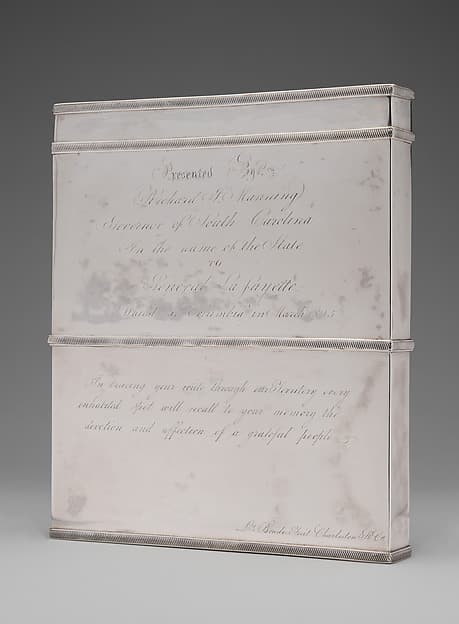 Presented By
Richard I. Manning
Governor of South Carolina
In the name of the State
TO
General La Fayette
in March
In tracing your route through our Territory every
inhabited spot will recall to your memory the
devotion and affection of a grateful people
Charleston So. Ca.